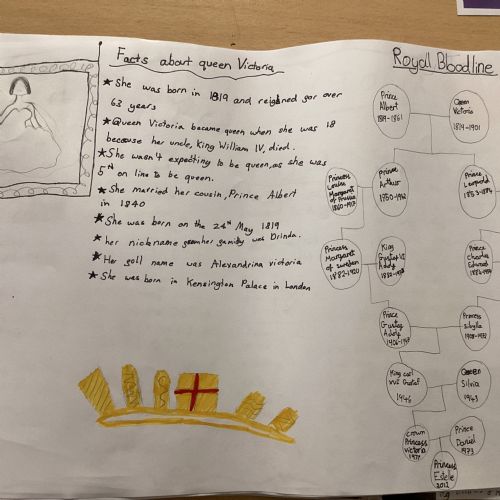 Facts about queen Victoria
★ She was born in 1819 and reigned gor over
63 years
★ Queen Victoria became queen when she was 18
because her uncle, King William IV, died.
★ She wasn't expecting to be queen, as she was
5th on line to be queen.
★ She married her cousin, Prince Albert
in 1840
★ She was born on the 24th May 1819
★ her nickname from her gamily was Drinda.
★ Her goll name was Alexandrina victoria
★ She was born in Kensington Palace in London
Royal Bloodline
Prince
Albert
1819-1861
Queen
Victoria
1819-1901
Princess
Louise
Margaret
of Prussia
1860-1917
Prince
Arthur
1850-1942
Prince
Leopold
1853-1884
Princess
Margaret
of sweden
1882-1920
King
Gustaf VI
Adolf
Prince
Charles
Edward
Prince
Gustaf
Adolf
1906-1947
Princess
Sibylla
1908-1972
King carl
xvi Gustaf
1946
Queen
Silvia
1943
crown
Princess
victoria
1977
Prince
Daniel
1973
Princess
Estelle
2012